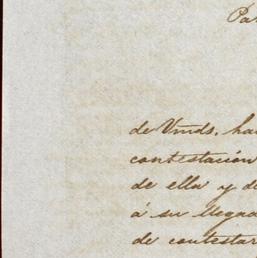 Pa
de Vmds. ha
contestación
de ella y de
á su llegad
de contestar